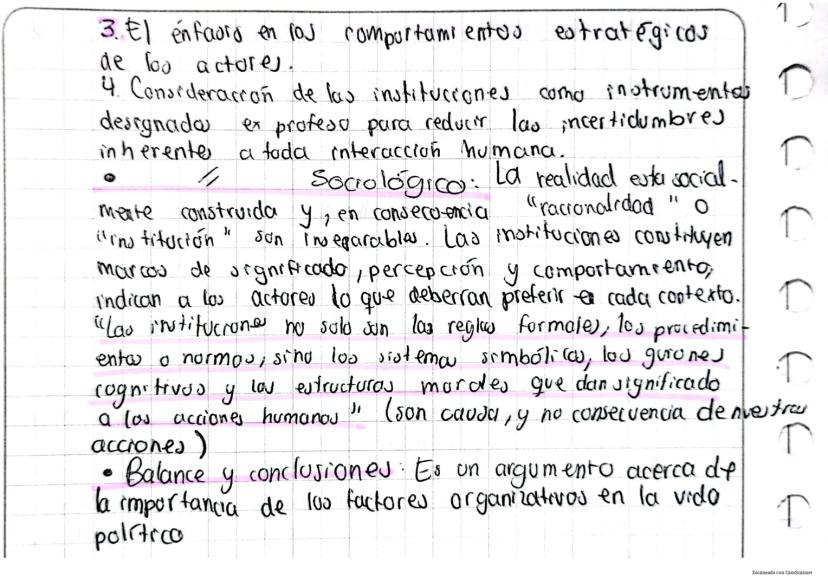 3. El énfasis en los comportamientos estratégicos
de los actores.
4. Consideración de las instituciones como instrumentos
designados ex profeso para reducir las incertidumbres
inherente a toda interacción humana.
• // Sociológico: La realidad esta social-
mente construida y, en consecuencia "racionalidad" o
"institución" son inseparables. Las instituciones constituyen
marcos de significado, percepción y comportamiento,
indican a los actores lo que deberían preferir e cada contexto.
"Las instituciones no solo son las reglas formales, los procedimi-
entos o normas, sino los sistemas simbólicos, los guiones
cognitivos y las estructuras morales que dan significado
a las acciones humanas" (son causa, y no consecuencia de nuestras
acciones)
• Balance y conclusiones: Es un argumento acerca de
la importancia de los factores organizativos en la vida
política
Escaneado con CamScanner